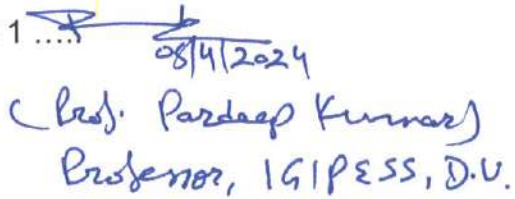 1 .....
08/4/2024
(Prof. Pardeep Kumar)
Professor, IGIPESS, D.U.